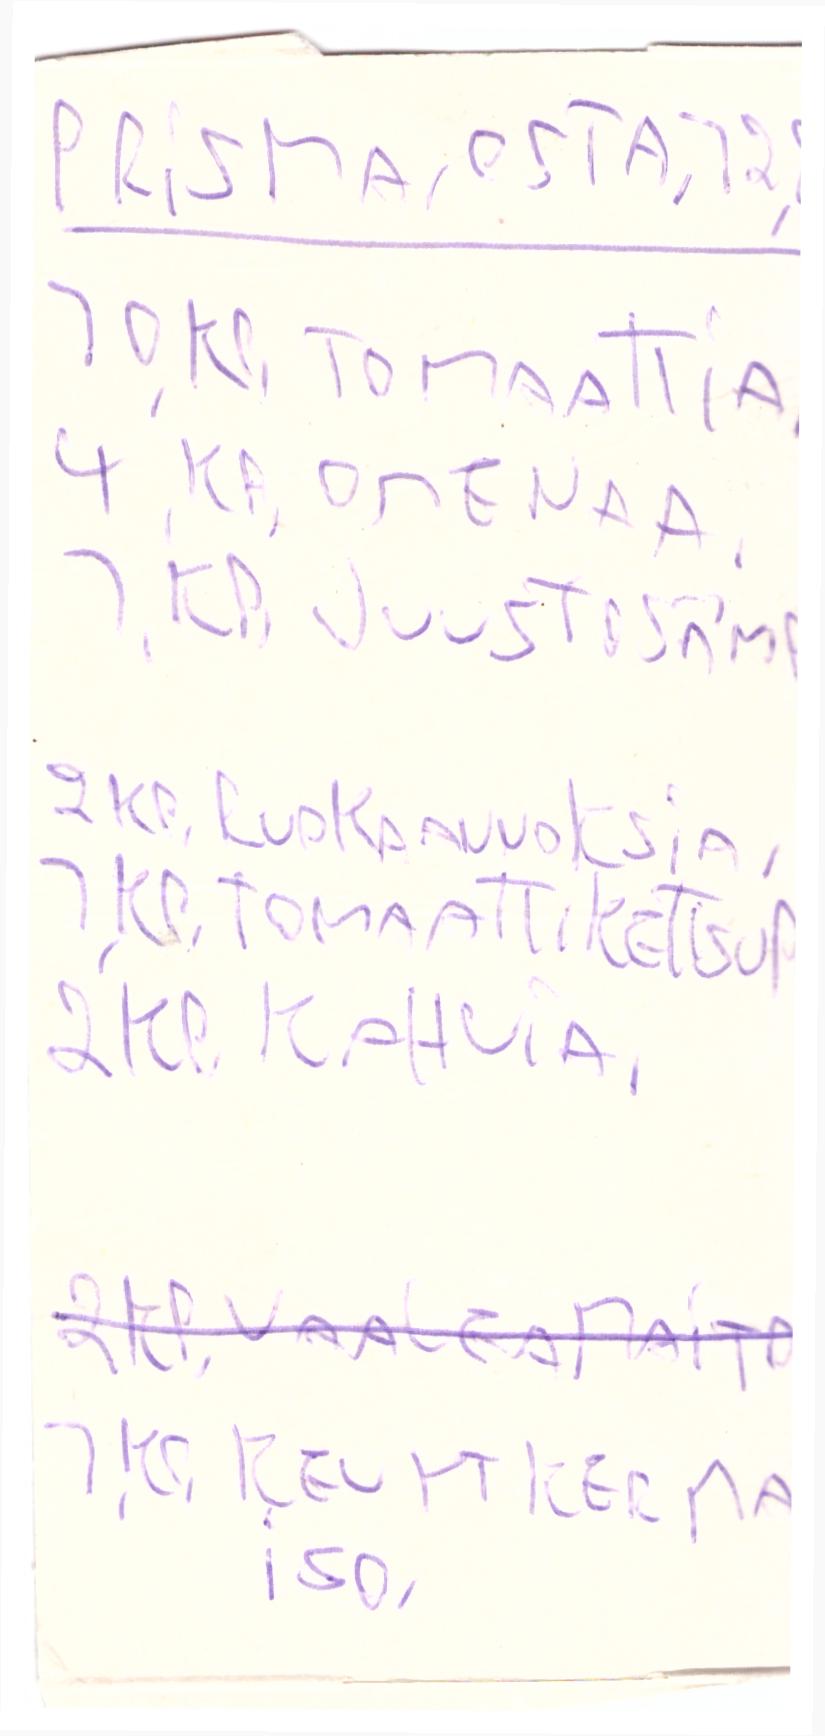 PRISMA, OSTA, 12,
10, KP, TOMAATTIA,
4, KP, OMENAA,
1, KP, JUUSTOSÄMP
2 KP, RUOKAAVUOKSIA,
1, KP, TOMAATTIKETTSUP
2 KP, KAHVIA,
2 KP, VAALEAMAITO
1, KP, KEVYTKERMA
ISO,